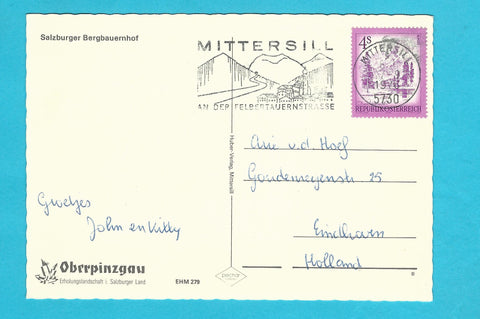 Salzburger Bergbauernhof
MITTERSILL
AN DER FELBERTAUERNSTRASSE
4S
MITTERSILL
5730
REPUBLIK ÖSTERREICH
Arie v.d. Hoef
25
Eindhoven
Holland
Groetjes
John en Kitty
Huber-Verlag, Mittersill
Oberpinzgau
Erholungslandschaft i. Salzburger Land
EHM 279